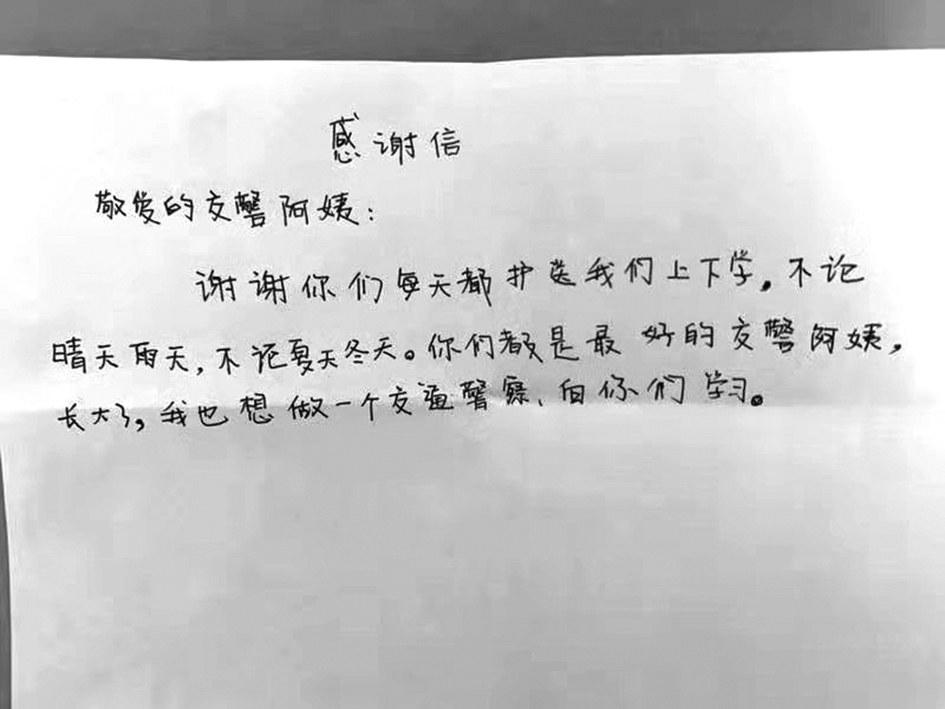 感谢信
敬爱的交警阿姨：
谢谢你们每天都护送我们上下学。不论
晴天雨天，不论夏天冬天。你们都是最好的交警阿姨，
长大了，我也想做一个交通警察、向你们学习。